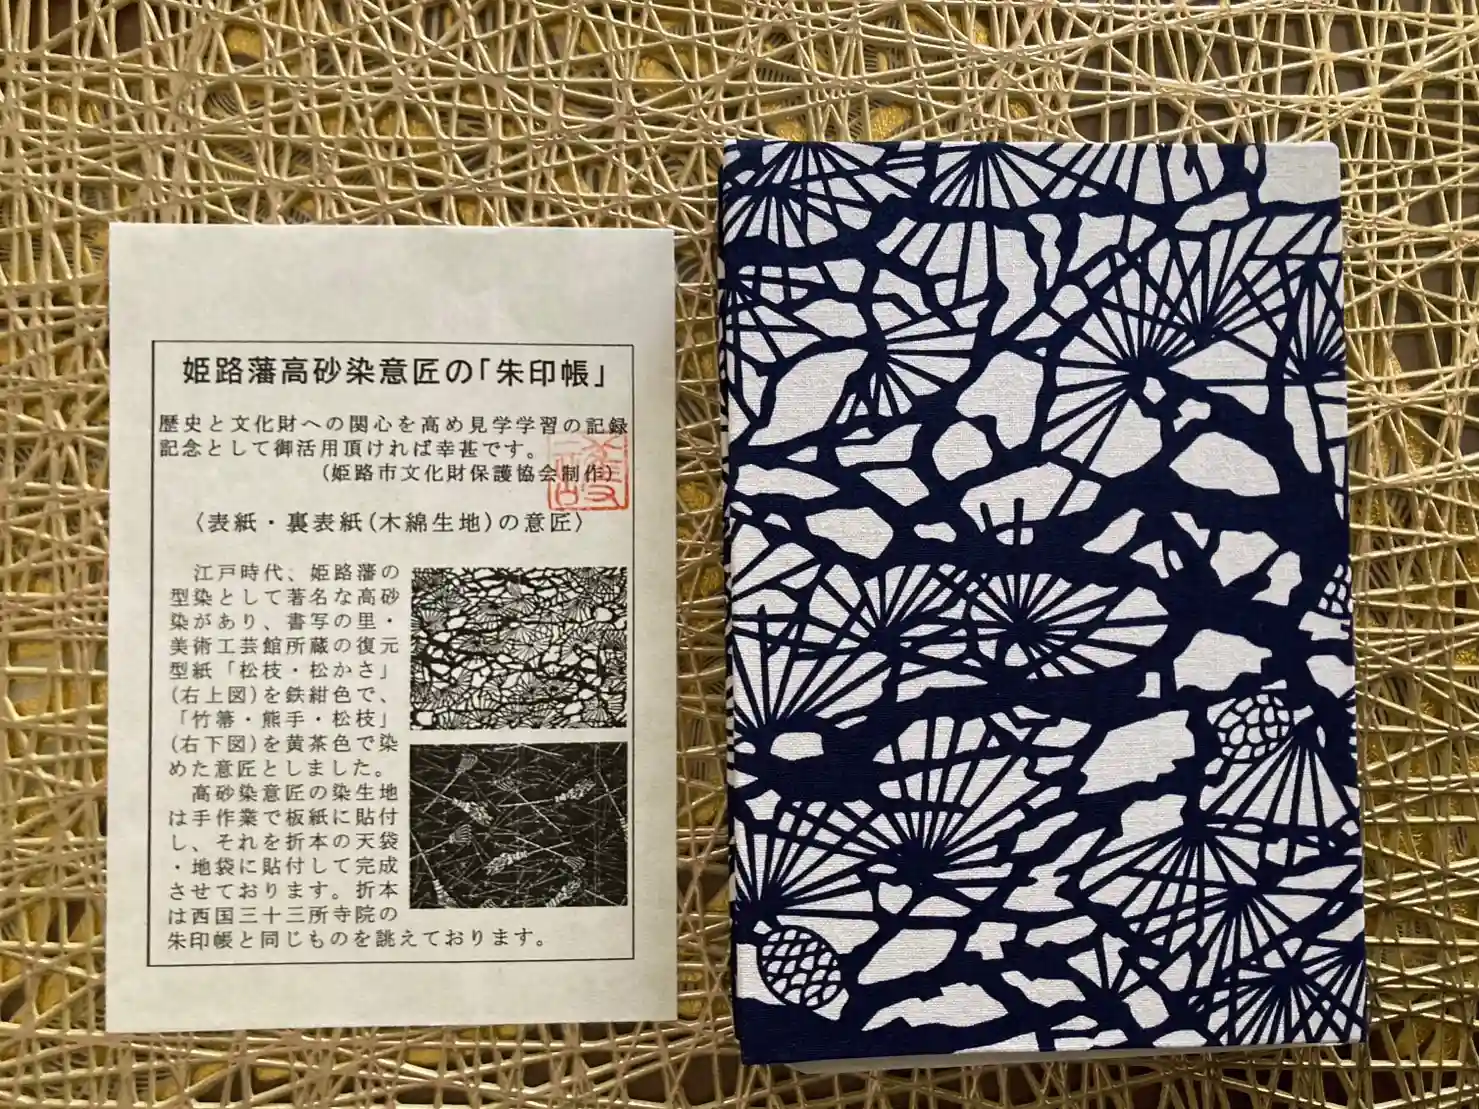 姫路藩高砂染意匠の「朱印帳」
歴史と文化財への関心を高め見学学習の記録
記念として御活用頂ければ幸甚です。
(姫路市文化財保護協会制作)
〈表紙・裏表紙(木綿生地)の意匠〉
江戸時代、姫路藩の
型染として著名な高砂
染があり、書写の里・
美術工芸館所蔵の復元
型紙「松枝・松かさ」
(右上図)を鉄紺色で、
「竹箒・熊手・松枝」
(右下図)を黄茶色で染
めた意匠としました。
高砂染意匠の染生地
は手作業で板紙に貼付
し、それを折本の天袋
・地袋に貼付して完成
させております。折本
は西国三十三所寺院の
朱印帳と同じものを誂えております。